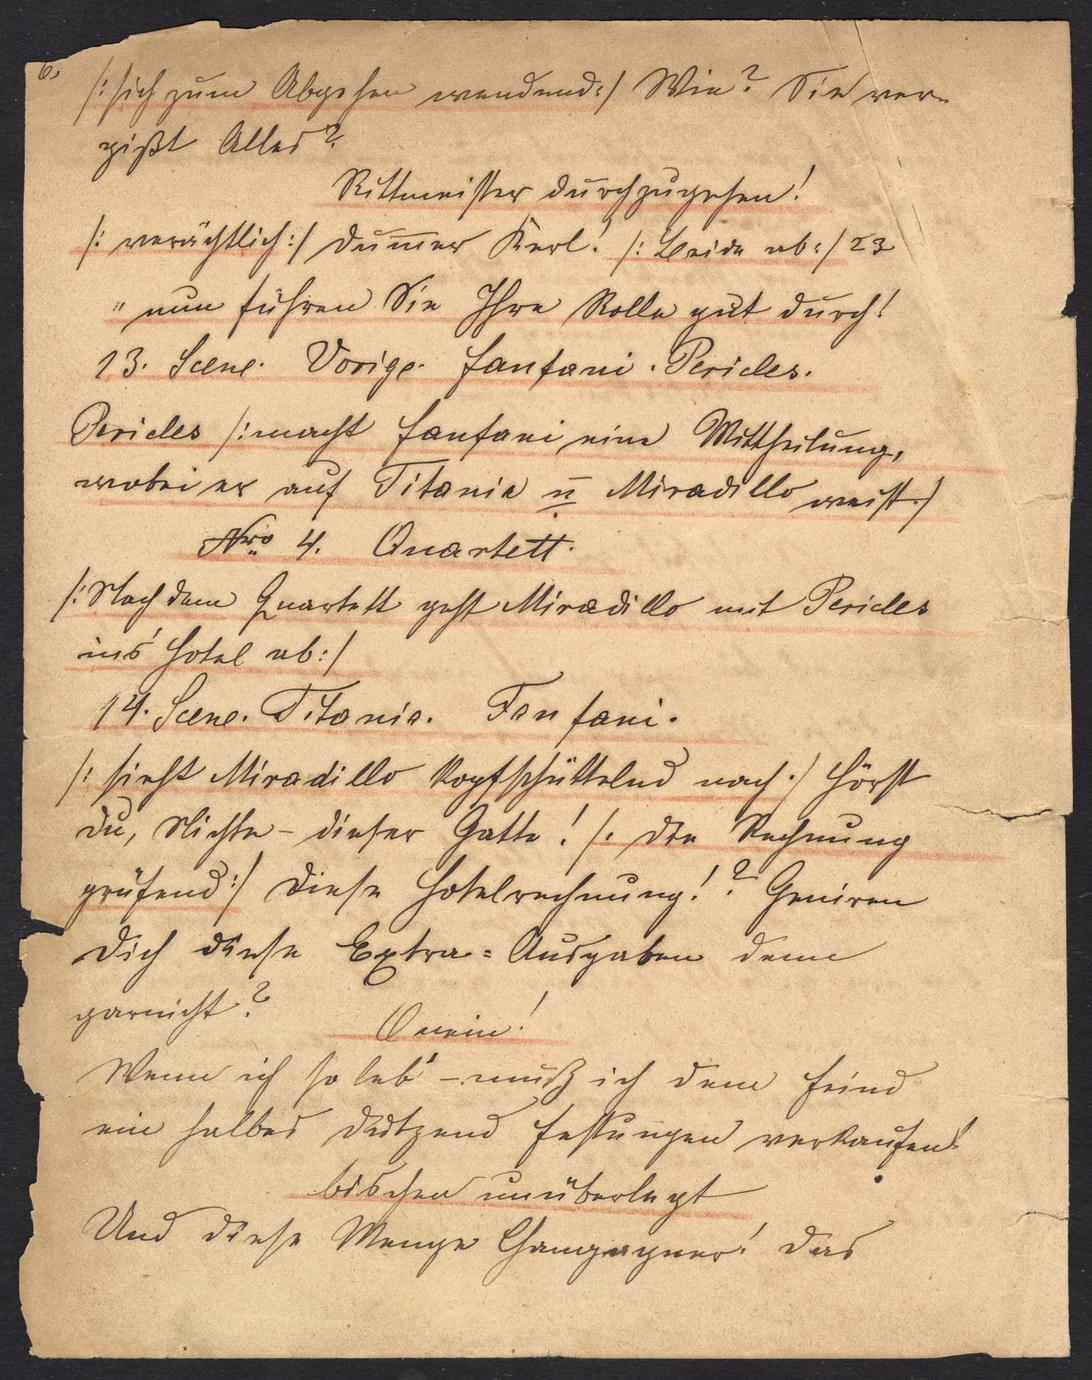 6.
/: sich zum Abgehen wendend :/ Wie? Sie ver-
gißt Alles?
Rittmeister durchzugehen!
/: verächtlich :/ dummer Kerl! /: Beide ab :/ 23
" nun führen Sie Ihre Rolle gut durch!
13. Scene. Vorige. Fanfani. Pericles.
Pericles /: macht Fanfani eine Mittheilung,
wobei er auf Titania u Miradillo weist :/
Nro 4. Quartett.
/: Nach dem Quartett geht Miradillo mit Pericles
ins Hotel ab :/
14. Scene. Titania. Fanfani.
/: sieht Miradillo kopfschüttelnd nach :/ Hörst
du, Nichte – dieser Gatte! /: die Rechnung
prüfend :/ Diese Hotelrechnung!? Geniren
Dich diese Extra=Ausgaben denn
garnicht?
O nein!
Wenn ich so leb' – muß ich dem Feind
ein halbes Dutzend Festungen verkaufen!
bischen unüberlegt
Und diese Menge Champagner! Das